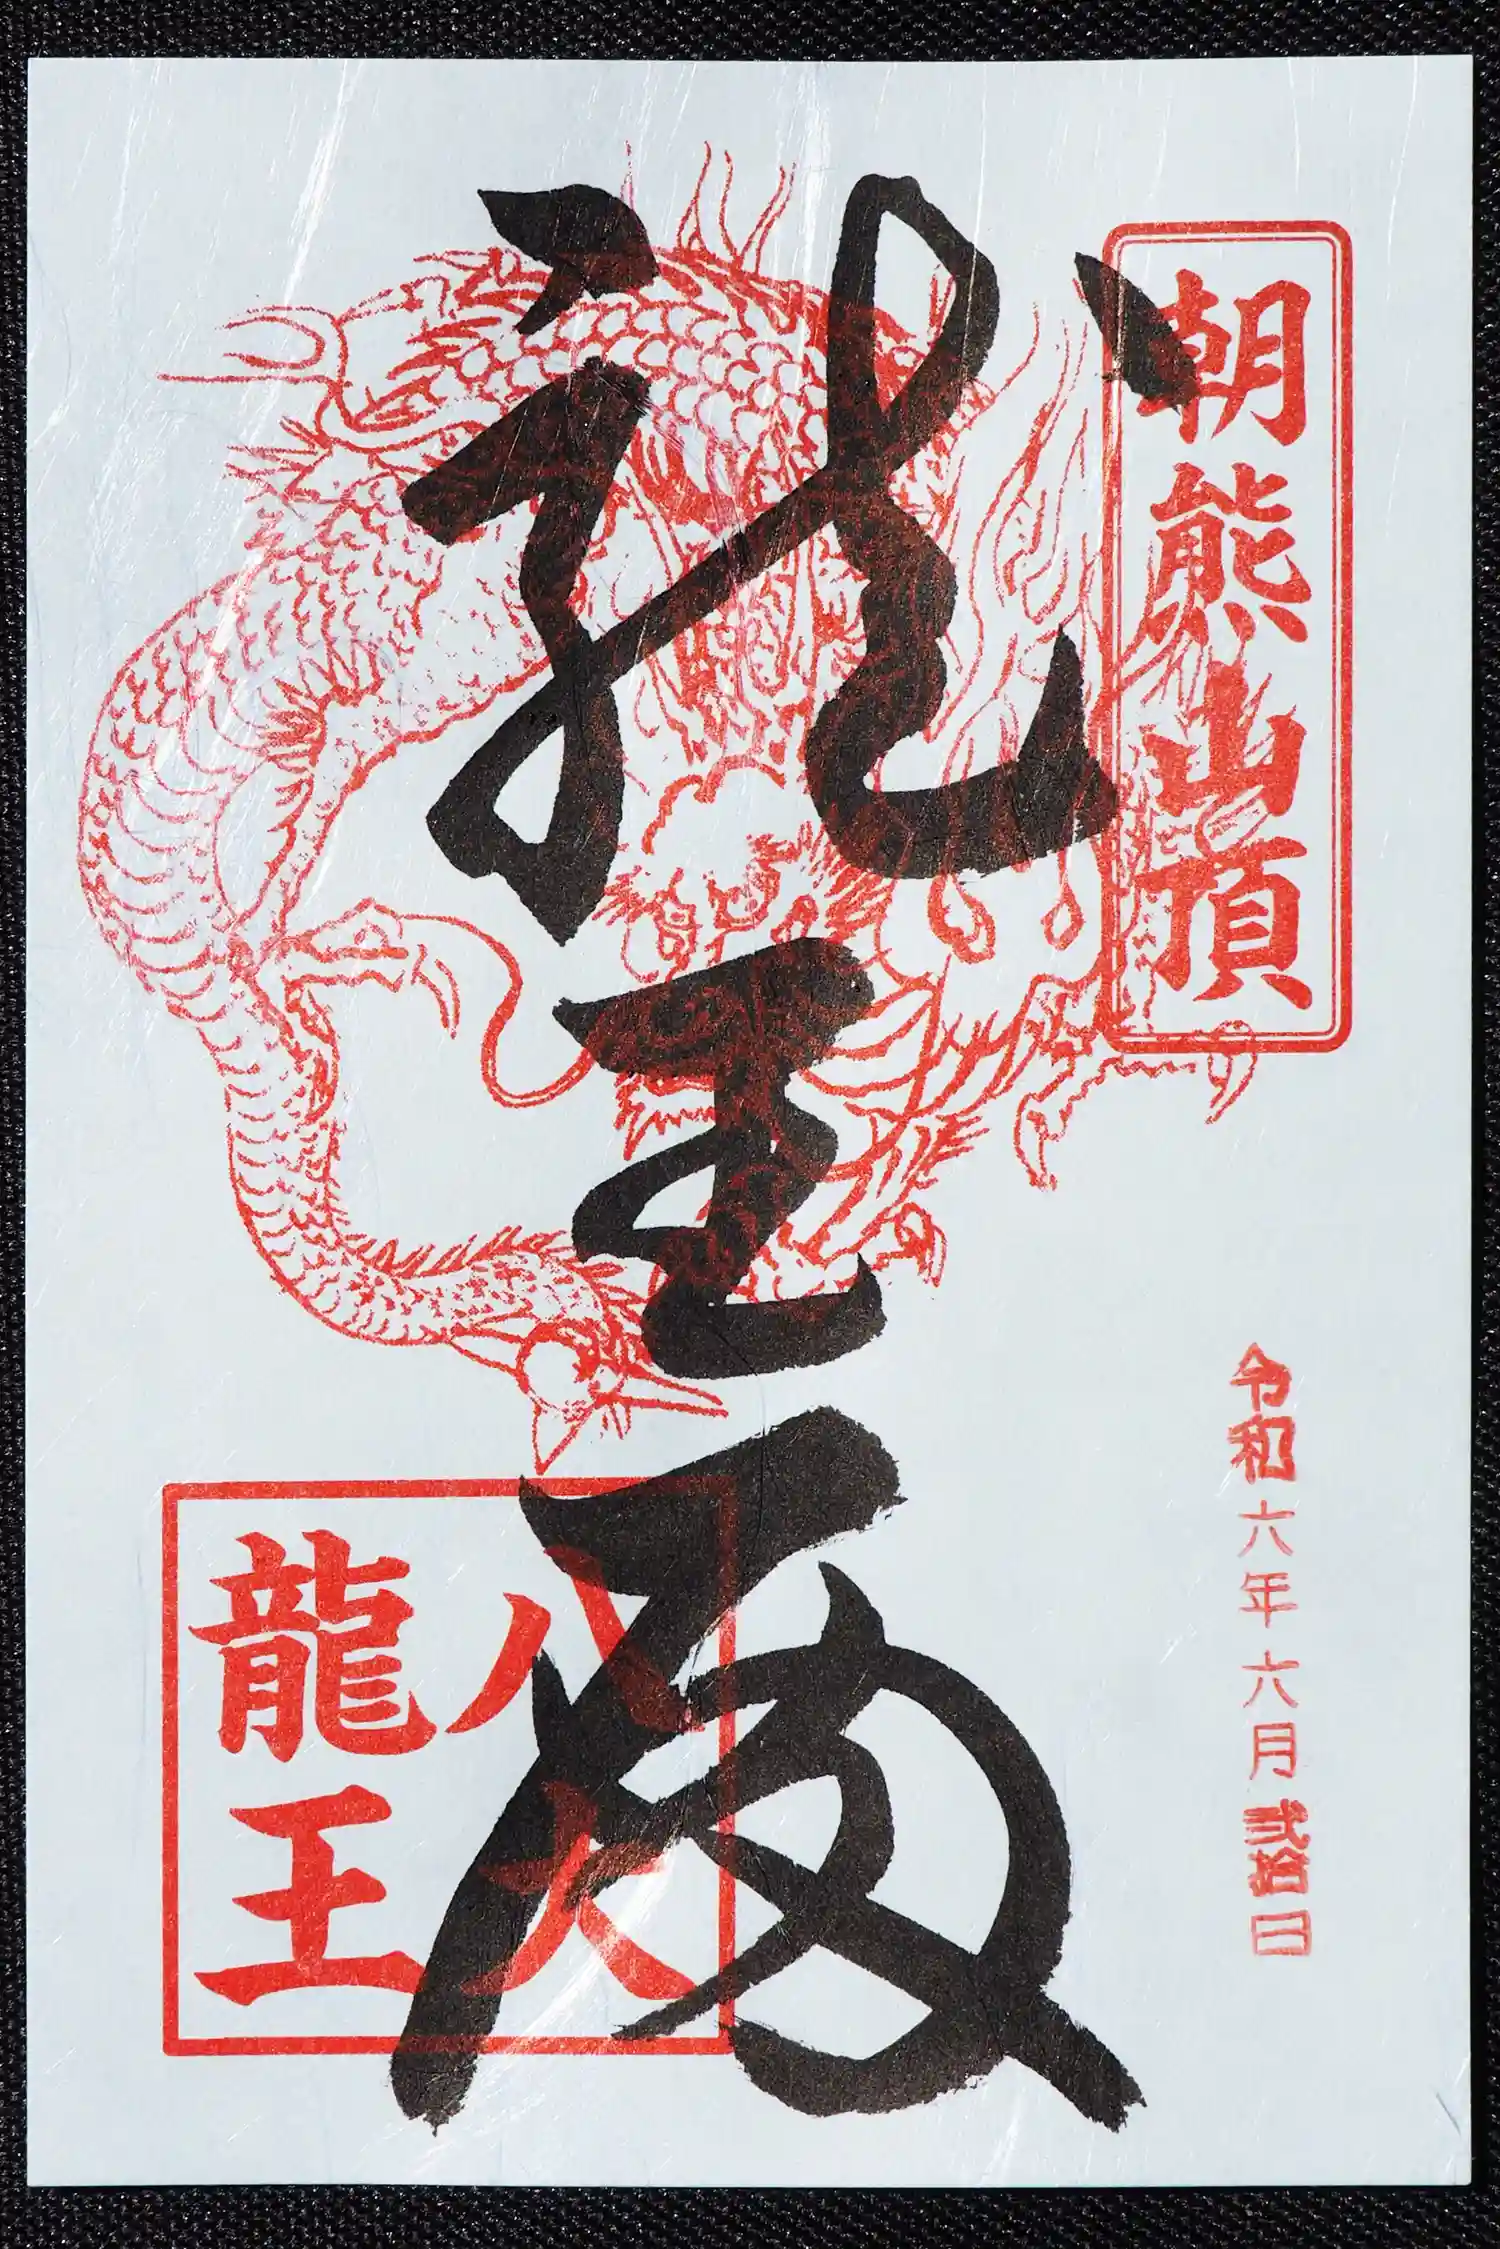 朝熊山頂
令和六年六月弐拾日
龍王
八大
龍王